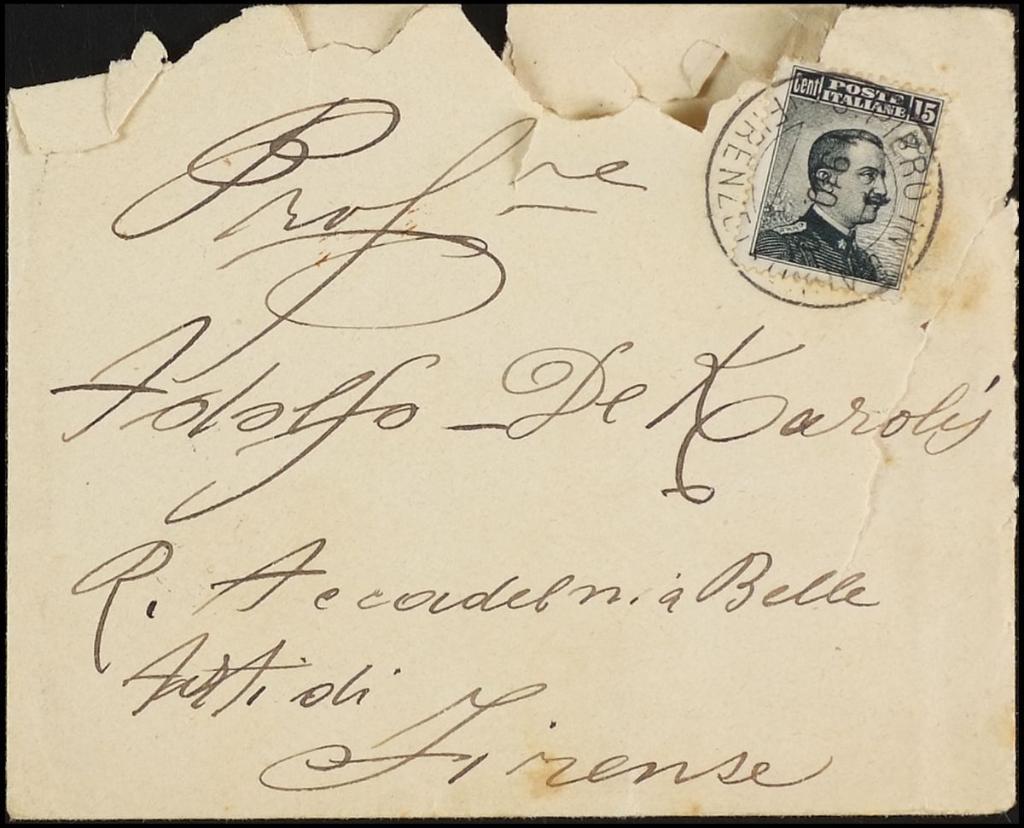 Cent POSTE ITALIANE 15
FIRENZE
Prof.re
Adolfo De Karolis
R. Accademia Belle
Arti di
Firense